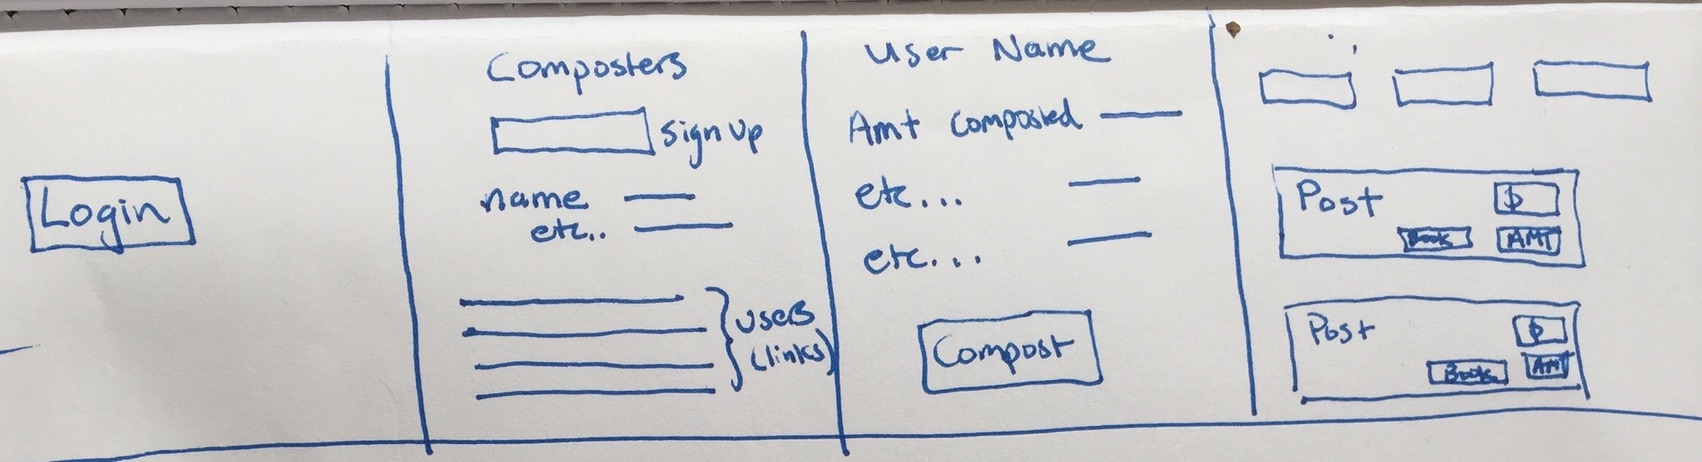 Login
Composters
Sign Up
name
etc..
users
(links)
User Name
Amt Composted
etc...
etc...
Compost
Post
$
Book
AMT
Post
$
Book
AMT